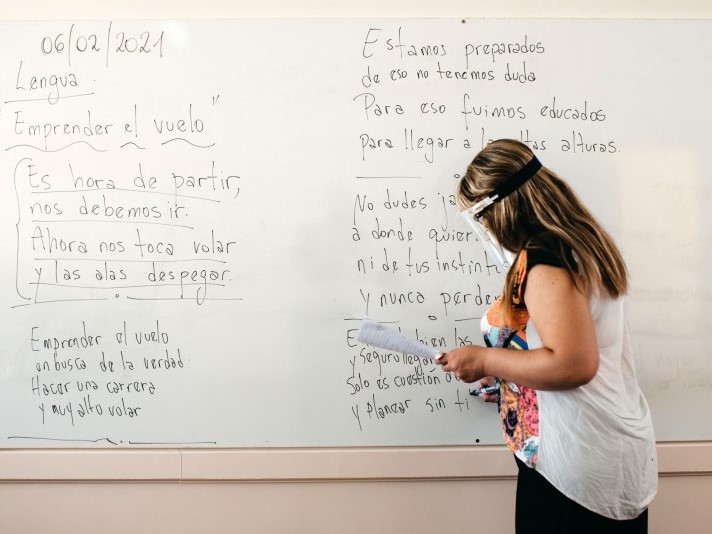 06/02/2021
Lengua.
"Emprender el vuelo"
Es hora de partir,
nos debemos ir.
Ahora nos toca volar
y las alas despegar.
Emprender el vuelo
en busca de la verdad
Hacer una carrera
y muy alto volar
Estamos preparados
de eso no tenemos duda
Para eso fuimos educados
para llegar a alturas.
No dudes
a donde
ni de tus
y nunca
y seguro
Solo es cuestión
y planear sin